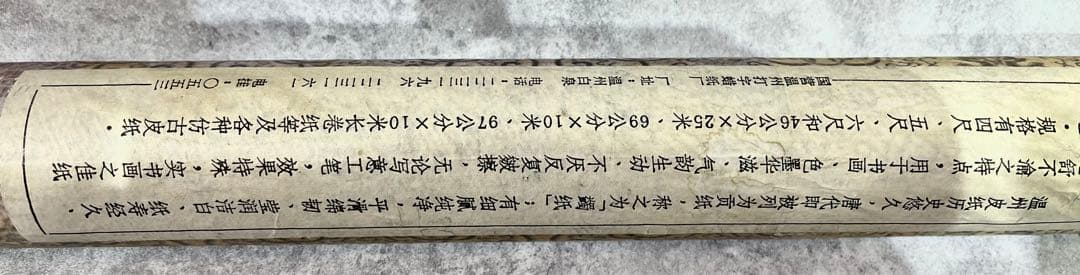 溫州皮纸历史悠久，唐代即被列为贡纸，称之为「蠲纸」；有细腻纯净，平滑绵韧、莹润洁白、纸寿经久、
舒不渝之特点，用于书画、色墨华滋、气韵生动、不厌反复皴擦，无论写意工笔，效果特殊，实书画之佳纸
。规格有四尺、五尺、六尺、和46公分×25米、69公分×10米、97公分×10米长卷纸等及各种仿古皮纸。
国营溫州打字蜡纸厂 厂址：溫州白泉 电话：二二三一九六 二二三一六一 电挂：〇五五三